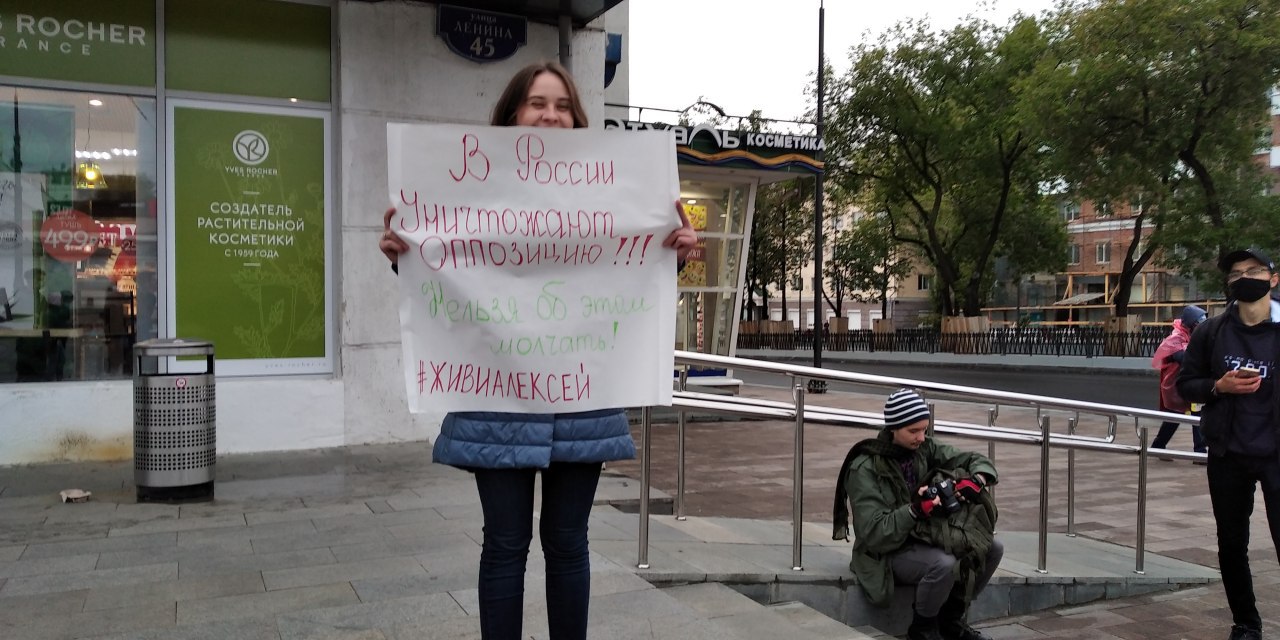 ES ROCHER
RANCE
улица
ЛЕНИНА
45
YVES ROCHER
FRANCE
СОЗДАТЕЛЬ
РАСТИТЕЛЬНОЙ
КОСМЕТИКИ
С 1959 ГОДА
499
В России
Уничтожают
оппозицию!!!
Нельзя об этом
молчать!
#ЖИВИАЛЕКСЕЙ
ЭТУАЛЬ КОСМЕТИКА